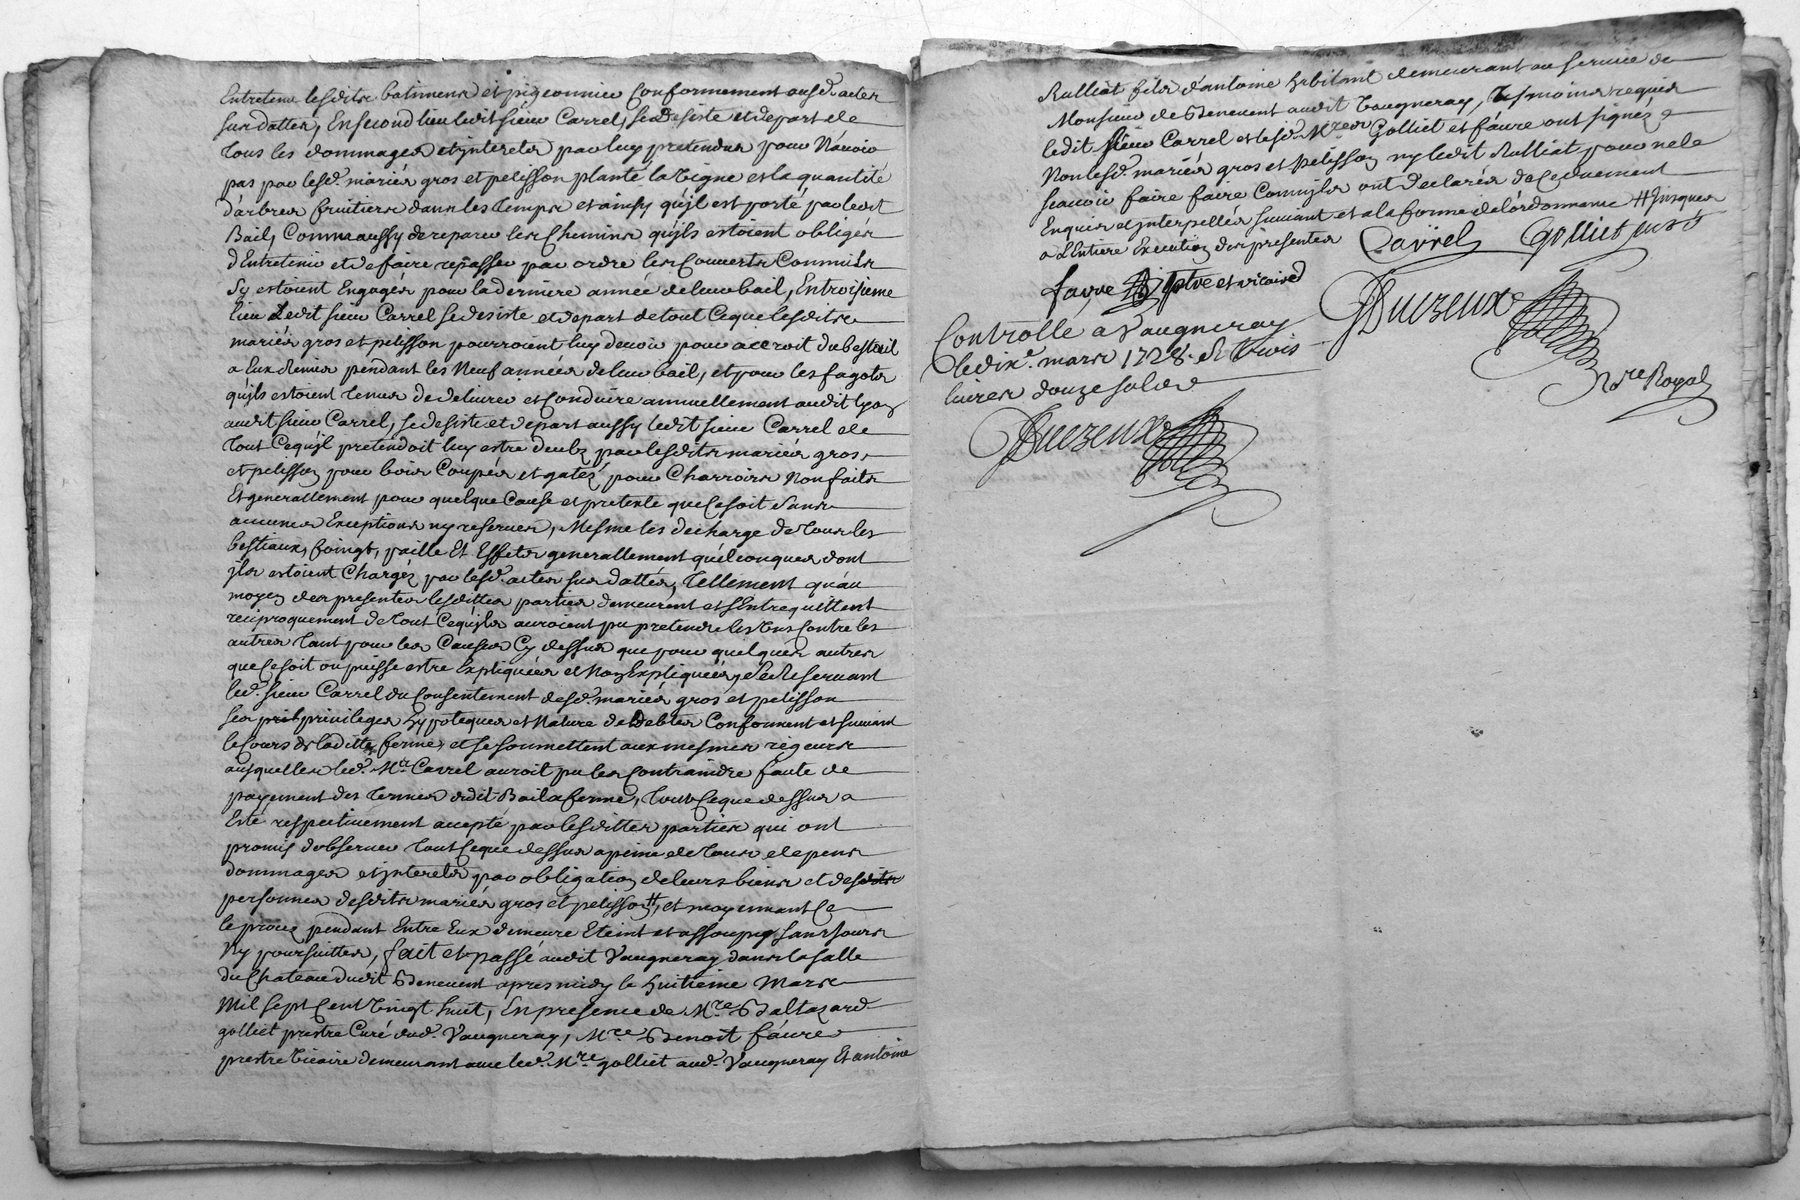 Entretenu lesdits batimens et pigeonnier Conformement ausd. actes
sus dattes, En second lieu ledit sieur Carrel, se desiste et depart de
tous les dommages et interets par luy pretendus pour N'avoir
pas par lesd. mariés gros et pelisson planté la Vigne et la quantité
d'arbres fruitiers dans les temps et ainsy qu'jl est porté par ledit
Bail, Comme aussy de reparer les Chemins qu'jls estoient obliges
d'Entretenir et de faire repasser par ordre les Couverts Comm'jls
s'y estoient Engagés pour la derniere année de leur bail, En troisieme
lieu Ledit sieur Carrel se desiste et depart de tout Ce que lesdits
mariés gros et pelisson pourroient luy devoir pour accroit du bestail
a Eux remis pendant les Neuf années de leur bail, et pour les fagots
qu'jls estoient tenus de delivrer et Conduire annuellement audit lyon
audit sieur Carrel, se desiste et depart aussy ledit sieur Carrel de
tout Ce qu'jl pretendoit luy estre deub par lesdits mariés gros
et pelisson pour bois Coupés et gatés, pour Charrois Non faits
Et generallement pour quelque Cause et pretexte que Ce soit sans
aucunes Exceptions ny reserves, Mesme les decharge de tous les
bestiaux, foingt, paille Et Effets generallement quelconques dont
jls estoient Chargés par lesd. actes sus dattés, tellement qu'au
moyen des presentes lesdittes parties demeurent et s'Entrequittent
reciproquement de tout Ce qu'jls auroient pu pretendre les Uns Contre les
autres tant pour les Causes Cy dessus que pour quelques autres
que Ce soit ou puisse estre Expliquées et Non Expliquées, se Reservant
led. sieur Carrel du Consentement desd. mariés gros et pelisson
ses privileges hypoteques et Nature de Debtes Conforment et suivant
le Cours de laditte ferme, et se soumettent aux mesmes rigeurs
ausquelles led. Mr Carrel auroit pu les Contraindre faute de
payement des termes dudit Bail a ferme, tout Ce que dessus a
Esté respectivement accepté par lesdittes parties qui ont
promis d'observer tout Ce que dessus a peine de tous depens
dommages et jnterets par obligation de leurs biens et desdits
personnes desdits mariés gros et pelisson #, et moyennant Ce
le procez pendant Entre Eux demeure Eteint et assoupy sans
Ny poursuittes, fait et passé audit Vaugneray dans la salle
du Chateau dudit Benevent apres midy le huitieme Mars
Mil sept Cent Vingt huit, En presence de Mre Baltazard
golliet prestre Curé dud. Vaugneray, Mre Benoit faure
prestre Vicaire demeurant avec led. Mre golliet aud. Vaugneray Et antoine
Rulliat fils d'antoine habitant demeurant au service de
Monsieur de Benevent audit Vaugneray, tesmoins requis
ledit sieur Carrel et lesd. Mres Golliet et faure ont signéz
Non lesd. mariés gros et pelisson ny ledit Rulliat pour ne le
scavoir faire Comm'jls ont declarés de Ce duement
Enquis et jnterpellés suivant et a la forme de l'ordonnance # jusques
a L'Entiere Execution des presentes
Carrel Golliet curé
faure ptre et vicaire
Duezeux
Nore Royal
Controllé a Vaugneray
le dix. mars 1728. R trois
livres douze sols
Duezeux